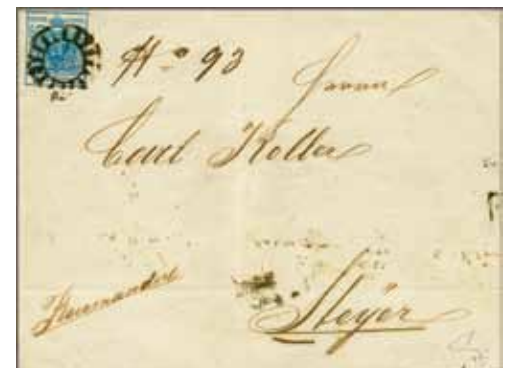 No 93
Herrn
Carl Koller
Steyer